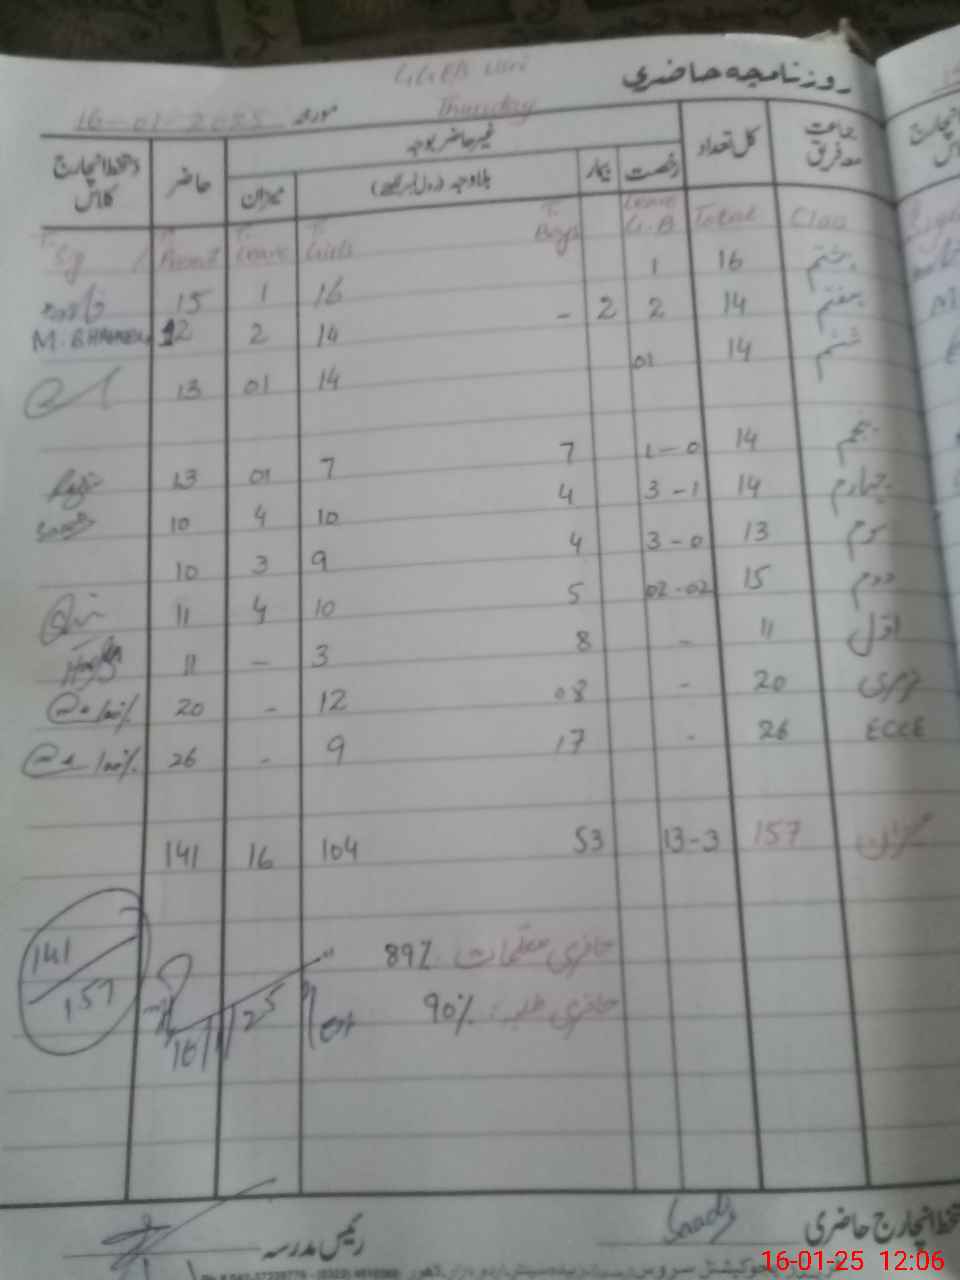 روزنامچہ حاضری
مورخہ 16-01-2025 Thursday
جماعت معہ فریق کل تعداد غیر حاضر بوجہ حاضر دستخط انچارج کلاس
رخصت بیمار بلاوجہ میزان
Class Total Leave G.B T. Boys T. Girls T. Leave T. Present T. Sg
ہشتم 16 1 16 1 15
ہفتم 14 2 2 - 14 2 12
ششم 14 01 14 01 13
پنجم 14 1-0 7 7 01 13
چہارم 14 3-1 4 10 4 10
سوم 13 3-0 4 9 3 10
دوم 15 02-02 5 10 4 11
اول 11 - 8 3 - 11
نرسری 20 - 08 12 - 20 100%
ECCE 26 - 17 9 - 26 100%
میزان 157 13-3 53 104 16 141
حاضری معلمات: 89%
حاضری طلبہ: 90%
141
157
16/1/25
دستخط انچارج حاضری
رئیس مدرسہ
16-01-25 12:06